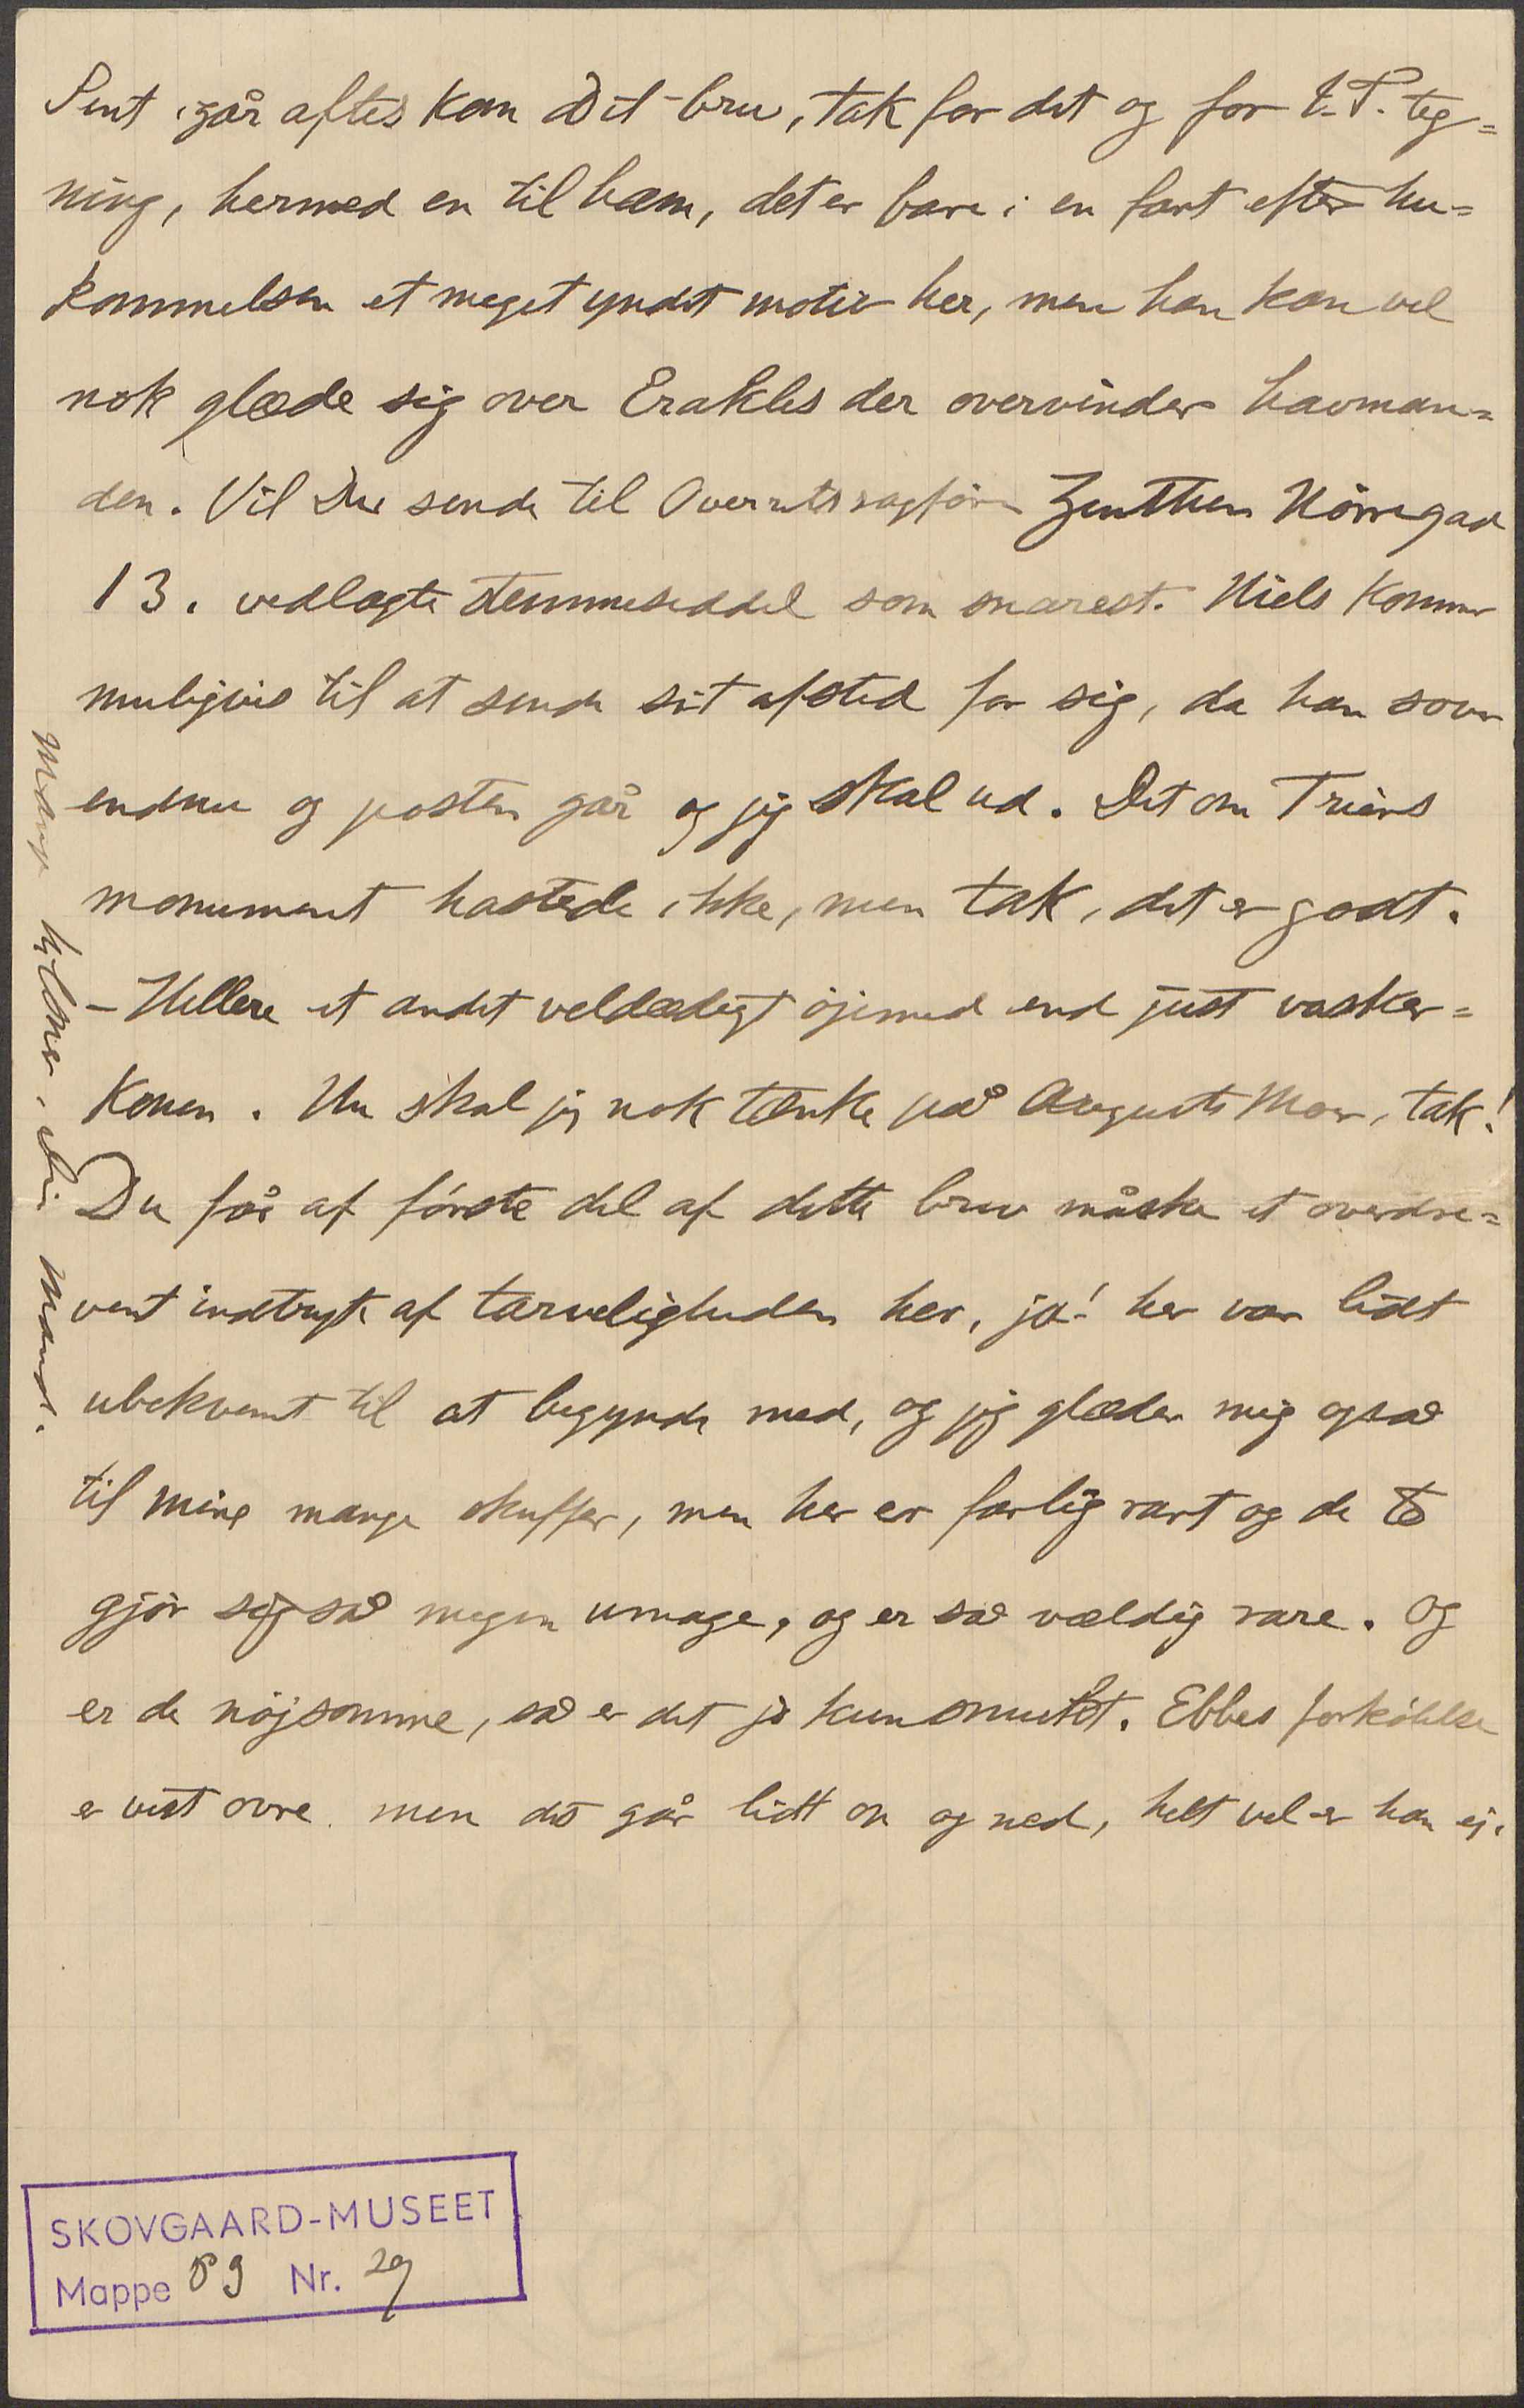 Sent igår aftes kom Dit brev, tak for det og for t. P. teg=
ning, hermed en til ham, det er bare i en fart efter hu=
kommelsen et meget yndet motiv her, men han kan vel
nok glæde sig over Erakles der overvinder havman=
den. Vil Du sende til Overretssagfører Zeuthen Nörregad
13. vedlagte stemmeseddel som snarest. Niels kommer
muligvis til at sende sit afsted for sig, da han sover
endnu og posten går og jeg skal ud. Det om Triers
monument hastede ikke, men tak, det er godt.
- Hellere et andet veldædigt öjemed end just vasker=
konen. Nu skal jeg nok tænke på Augusts Mor, tak!
Du får af förste del af dette brev måske et overdre=
vent indtryk af tarveligheden her, ja! her var lidt
ubekvemt til at begynde med, og jeg glæder mig også
til mine mange skuffer, men her er farlig rart og de to
gjör sig så megen umage, og er så vældig rare. Og
er de nöjsomme, så er det jo kun smukt. Ebbes forkölelse
er vist ovre men det går lidt op og ned, helt vel er han ej.
Mange hilsner, Din Mand.
SKOVGAARD-MUSEET
Mappe 89 Nr. 29